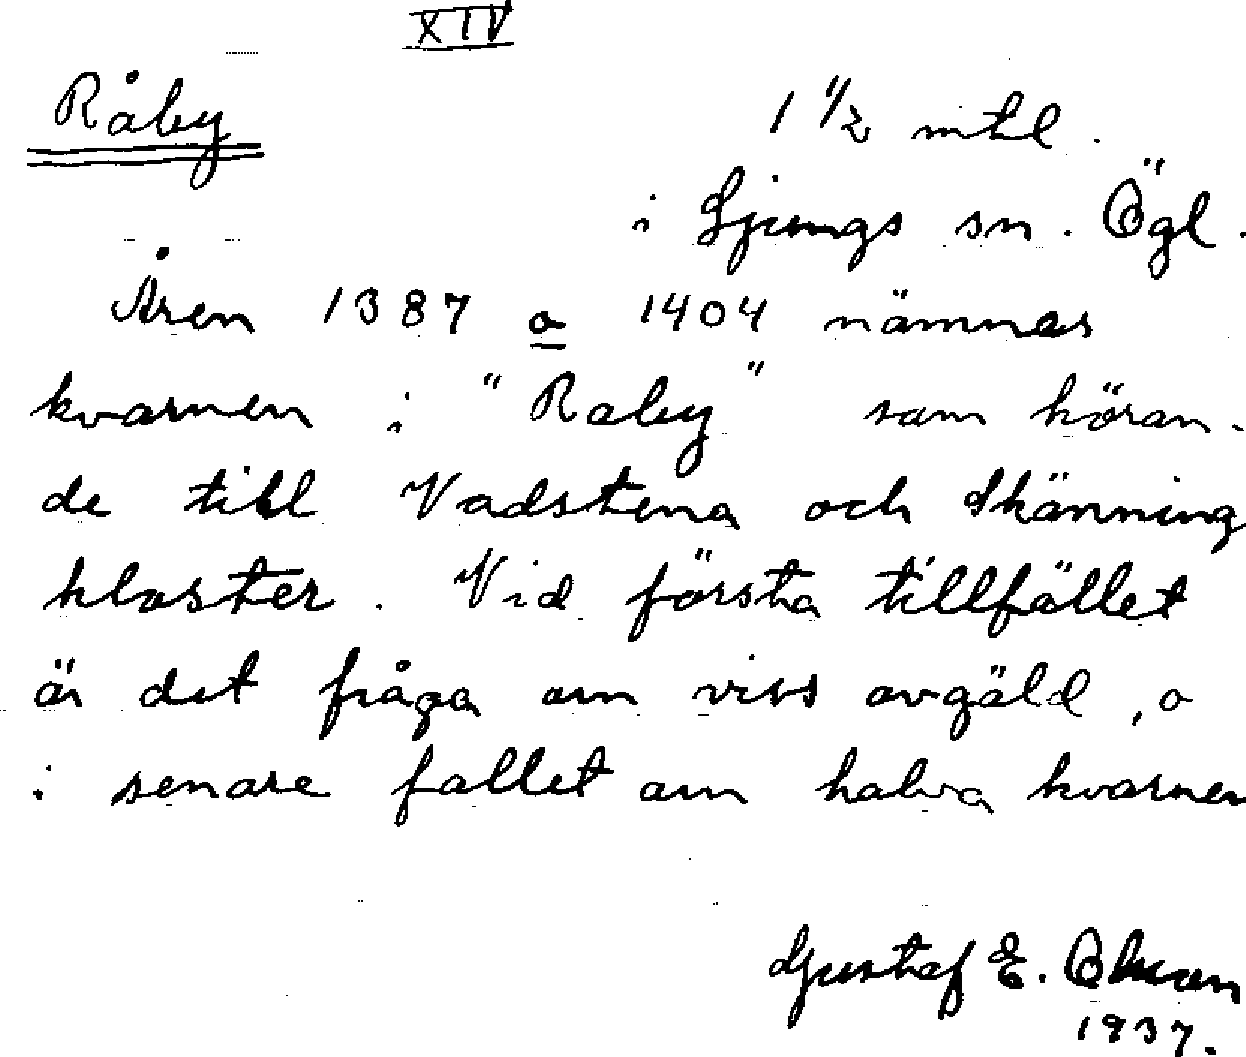 XIV
Råby
1 1/2 mtl.
i Ljungs sn. Ögl.
Åren 1387 o 1404 nämnes
kvarnen i "Raby" som höran-
de till Vadstena och Skänning
kloster. Vid första tillfället
är det fråga om viss avgäld, o
i senare fallet om halva kvarnen
Gustaf E. Olsson
1937.